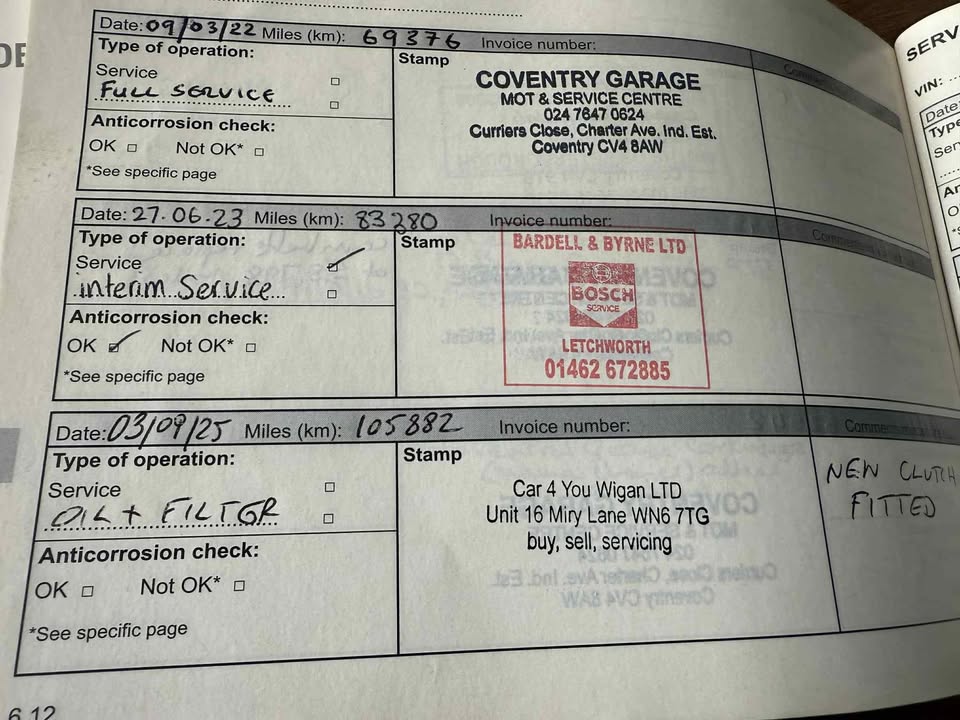 Date: 09/03/22 Miles (km): 69376 Invoice number:
Type of operation:
Service
FULL SERVICE
Anticorrosion check:
OK Not OK*
*See specific page
Stamp
COVENTRY GARAGE
MOT & SERVICE CENTRE
024 7647 0624
Curriers Close, Charter Ave. Ind. Est.
Coventry CV4 8AW
Date: 27.06.23 Miles (km): 83280 Invoice number:
Type of operation:
Service
interim Service
Anticorrosion check:
OK Not OK*
*See specific page
Stamp
BARDELL & BYRNE LTD
BOSCH
SERVICE
LETCHWORTH
01462 672885
Date: 03/09/25 Miles (km): 105882 Invoice number:
Type of operation:
Service
OIL + FILTER
Anticorrosion check:
OK Not OK*
*See specific page
Stamp
Car 4 You Wigan LTD
Unit 16 Miry Lane WN6 7TG
buy, sell, servicing
NEW CLUTCH
FITTED
6.12
SERV
VIN:
Date:
Type
Ser